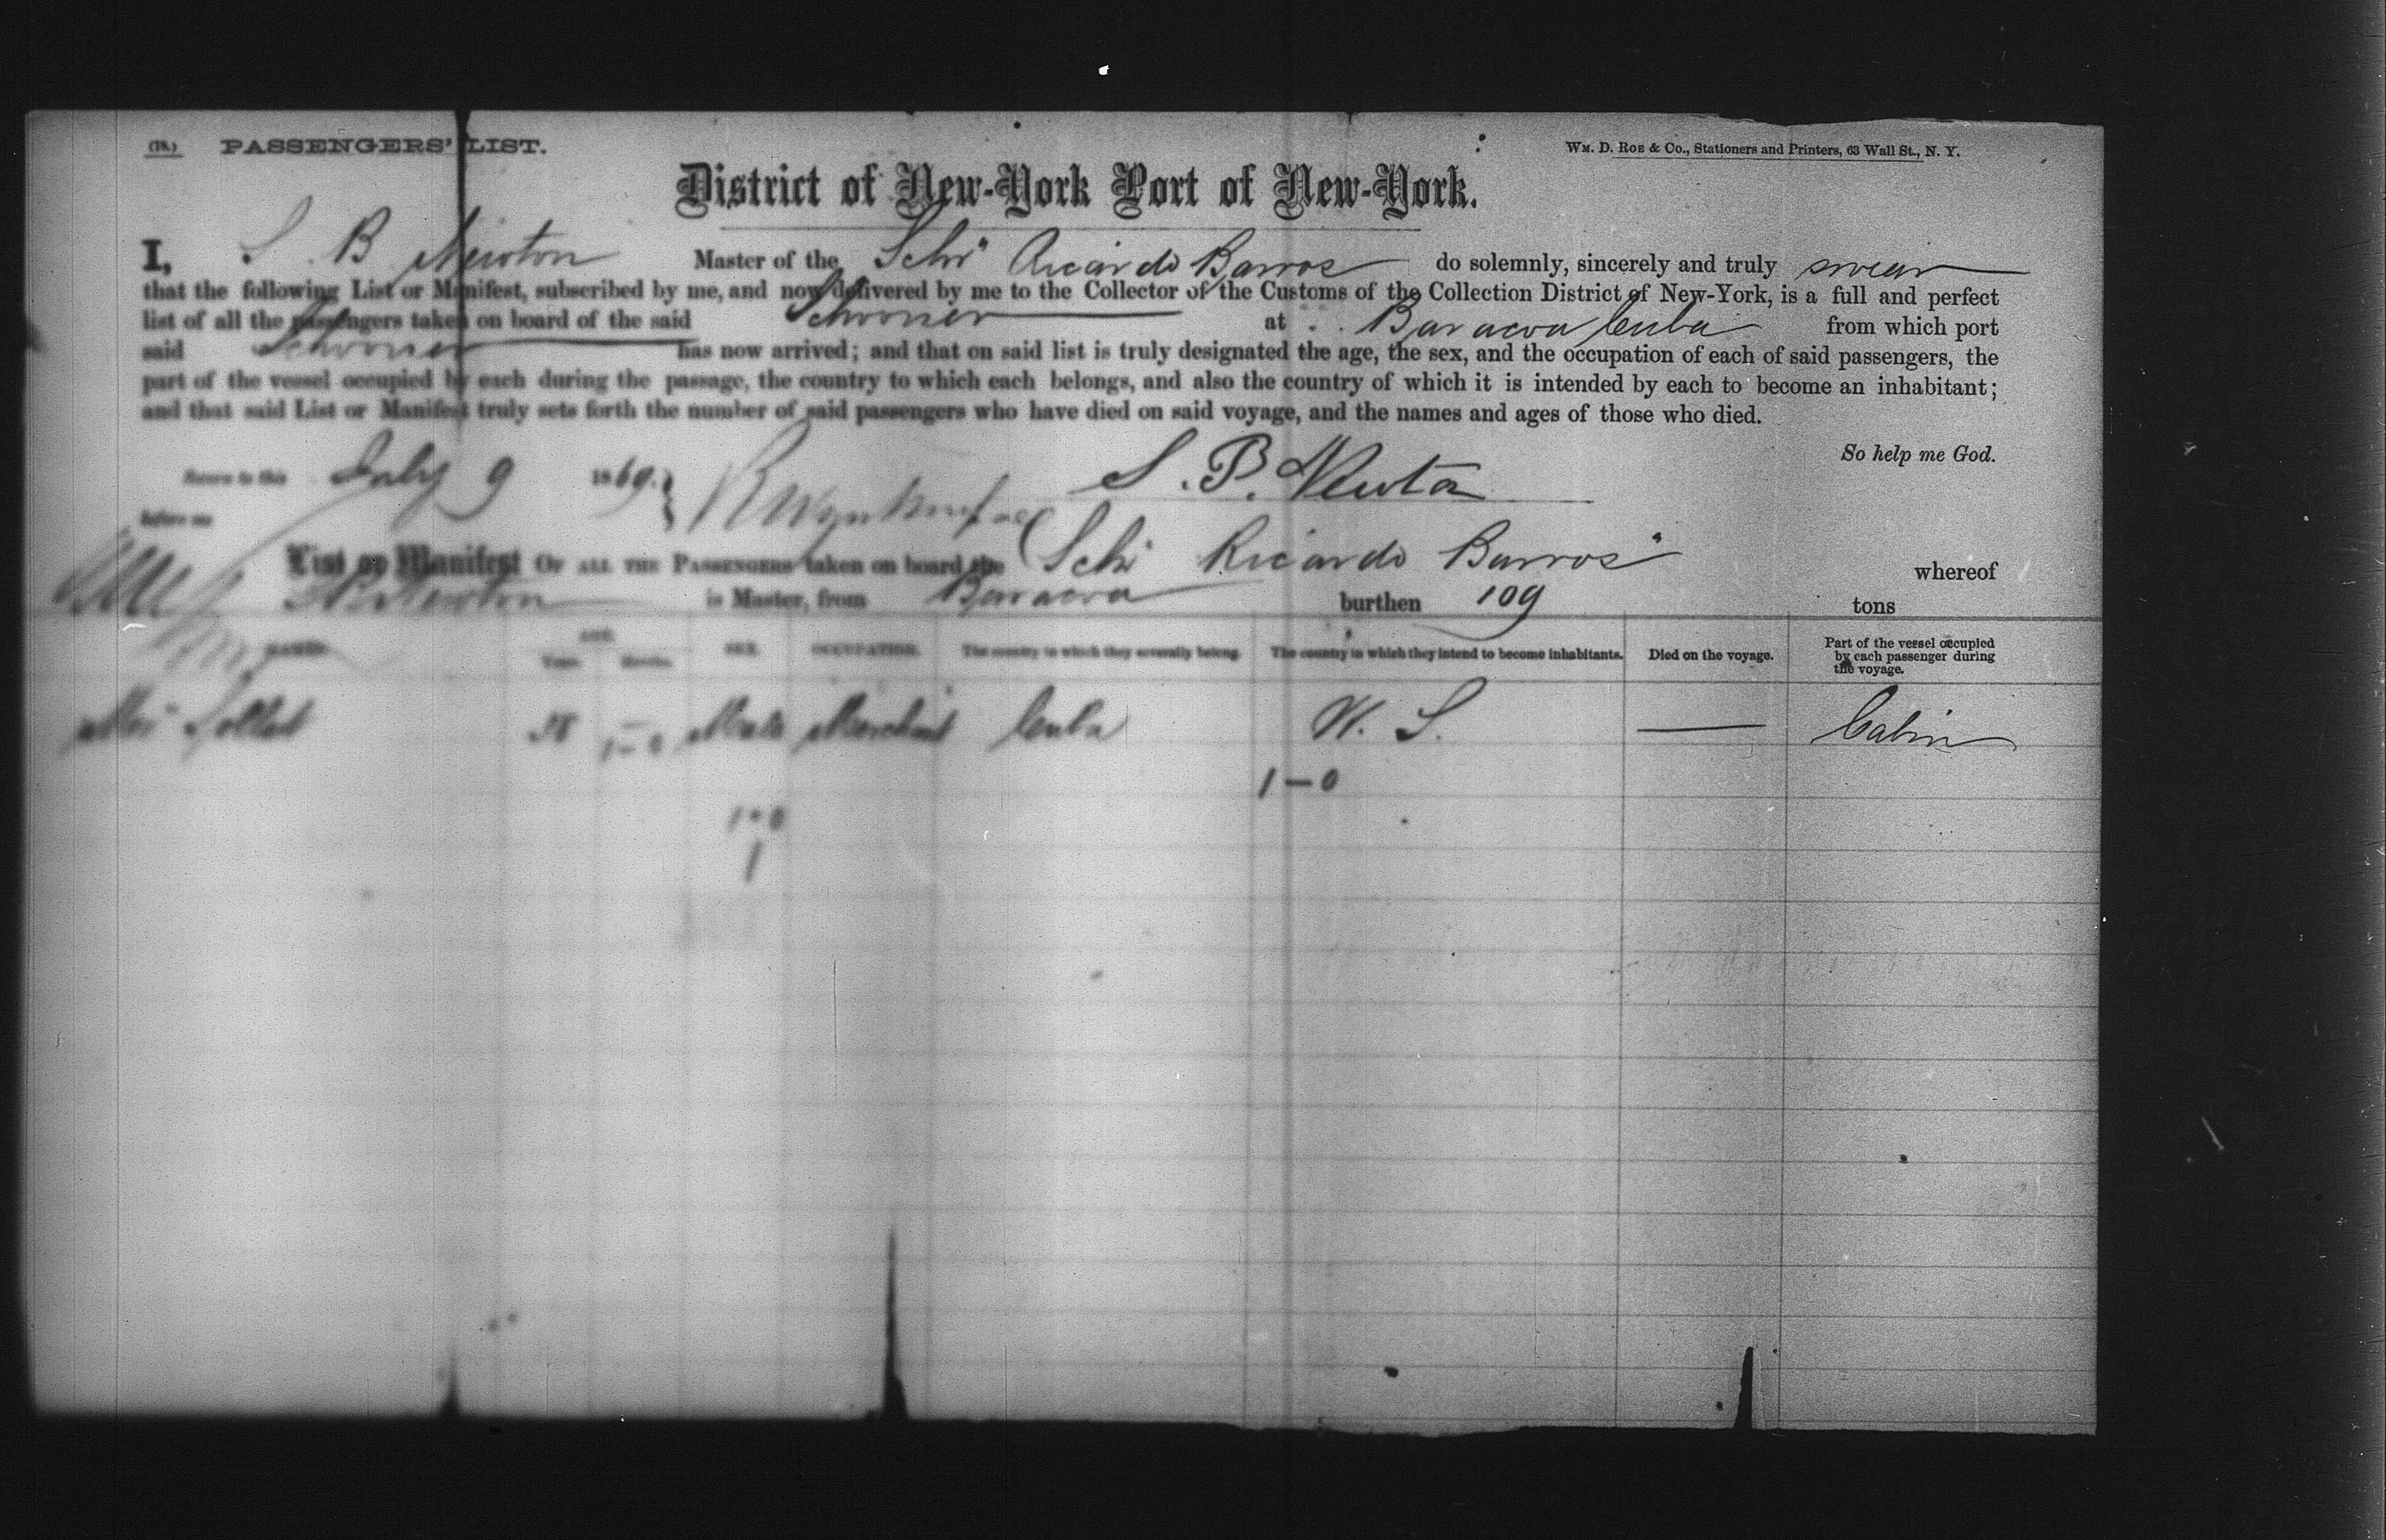 (18.) PASSENGERS' LIST. Wm. D. Roe & Co., Stationers and Printers, 63 Wall St., N. Y.
District of New-York Port of New-York.
I, S. B. Newton Master of the Schr Ricardo Barros do solemnly, sincerely and truly swear
that the following List or Manifest, subscribed by me, and now delivered by me to the Collector of the Customs of the Collection District of New-York, is a full and perfect
list of all the passengers taken on board of the said Schooner at Baracoa Cuba from which port
said Schooner has now arrived; and that on said list is truly designated the age, the sex, and the occupation of each of said passengers, the
part of the vessel occupied by each during the passage, the country to which each belongs, and also the country of which it is intended by each to become an inhabitant;
and that said List or Manifest truly sets forth the number of said passengers who have died on said voyage, and the names and ages of those who died.
So help me God.
Sworn to this July 9 1869. S. B. Newton
before me
List or Manifest Of all the Passengers taken on board the Schr Ricardo Barros whereof
S B Newton is Master, from Baracoa burthen 109 tons
NAMES. AGE. Years. Months. SEX. OCCUPATION. The country to which they severally belong. The country in which they intend to become inhabitants. Died on the voyage. Part of the vessel occupied by each passenger during the voyage.
38 1-0 Male Merchant Cuba U. S. — Cabin
1-0
1-0
1